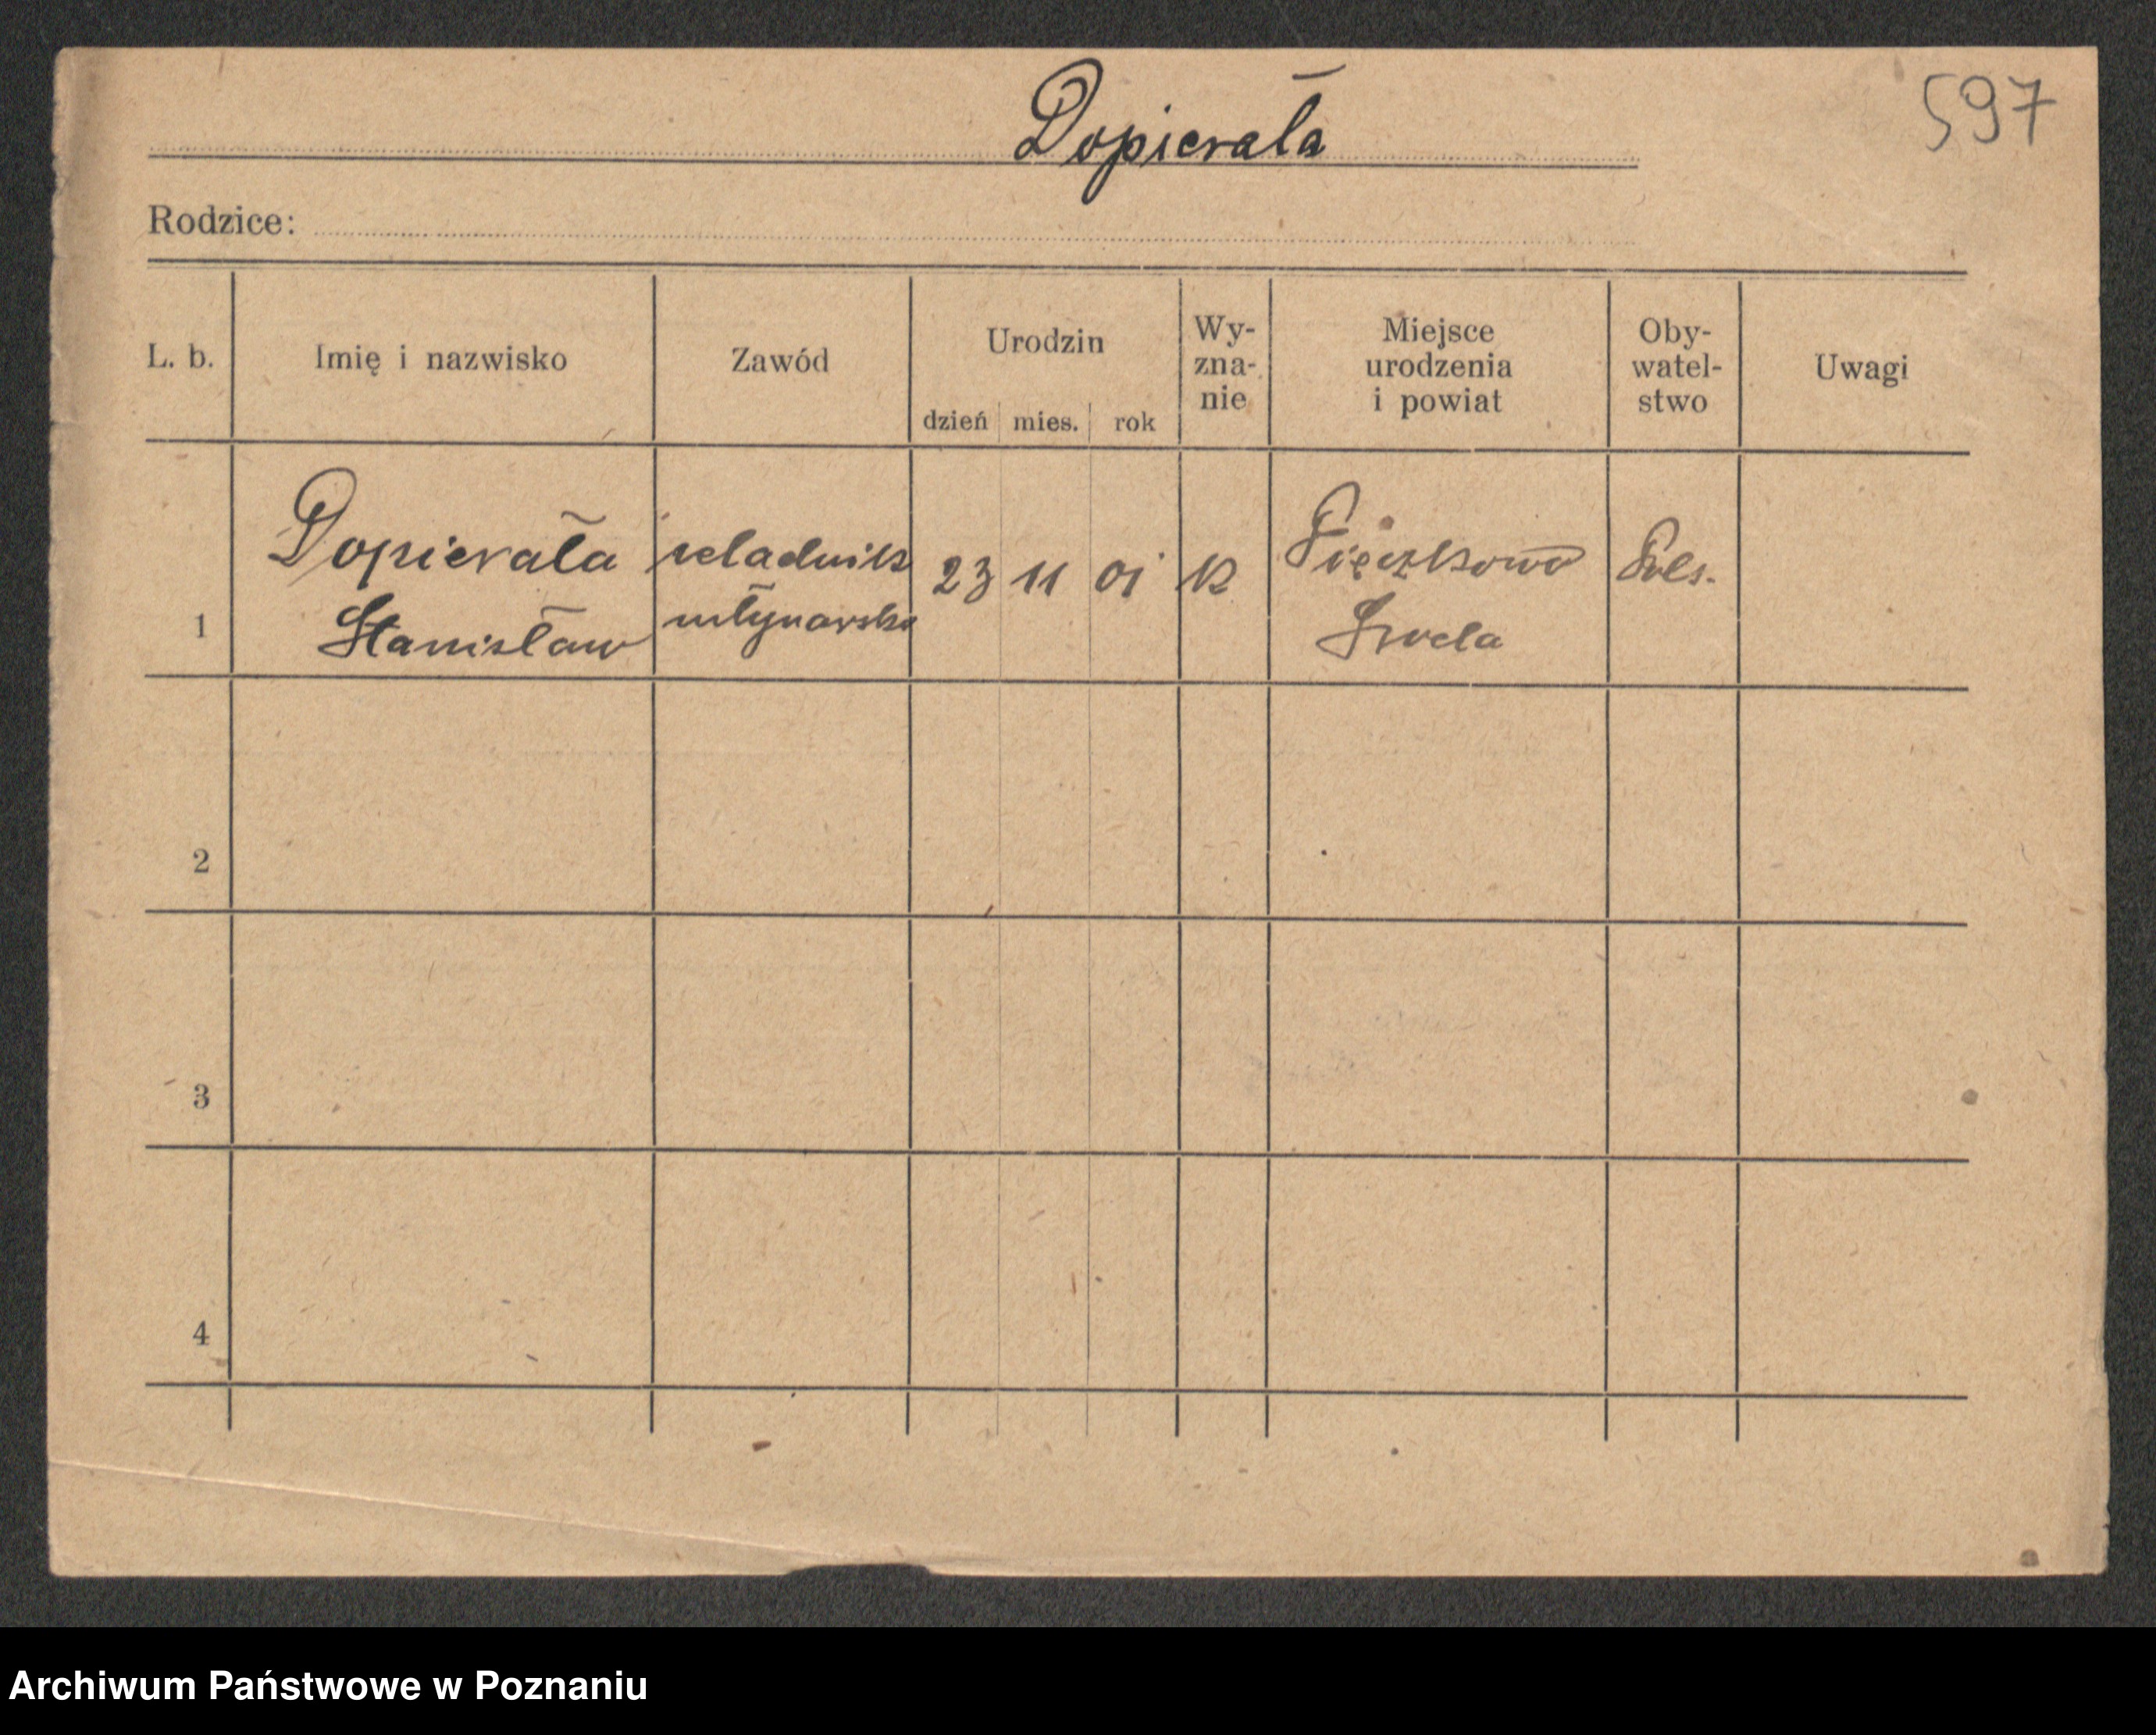 Dopierała
597
Rodzice:
L. b.
Imię i nazwisko
Zawód
Urodzin
dzień mies. rok
Wy-
zna-
nie
Miejsce
urodzenia
i powiat
Oby-
watel-
stwo
Uwagi
1
Dopierała
Stanisław
czeladnik
młynarski
23 11 01
k
Pięczkowo
Środa
Pols.
2
3
4
Archiwum Państwowe w Poznaniu